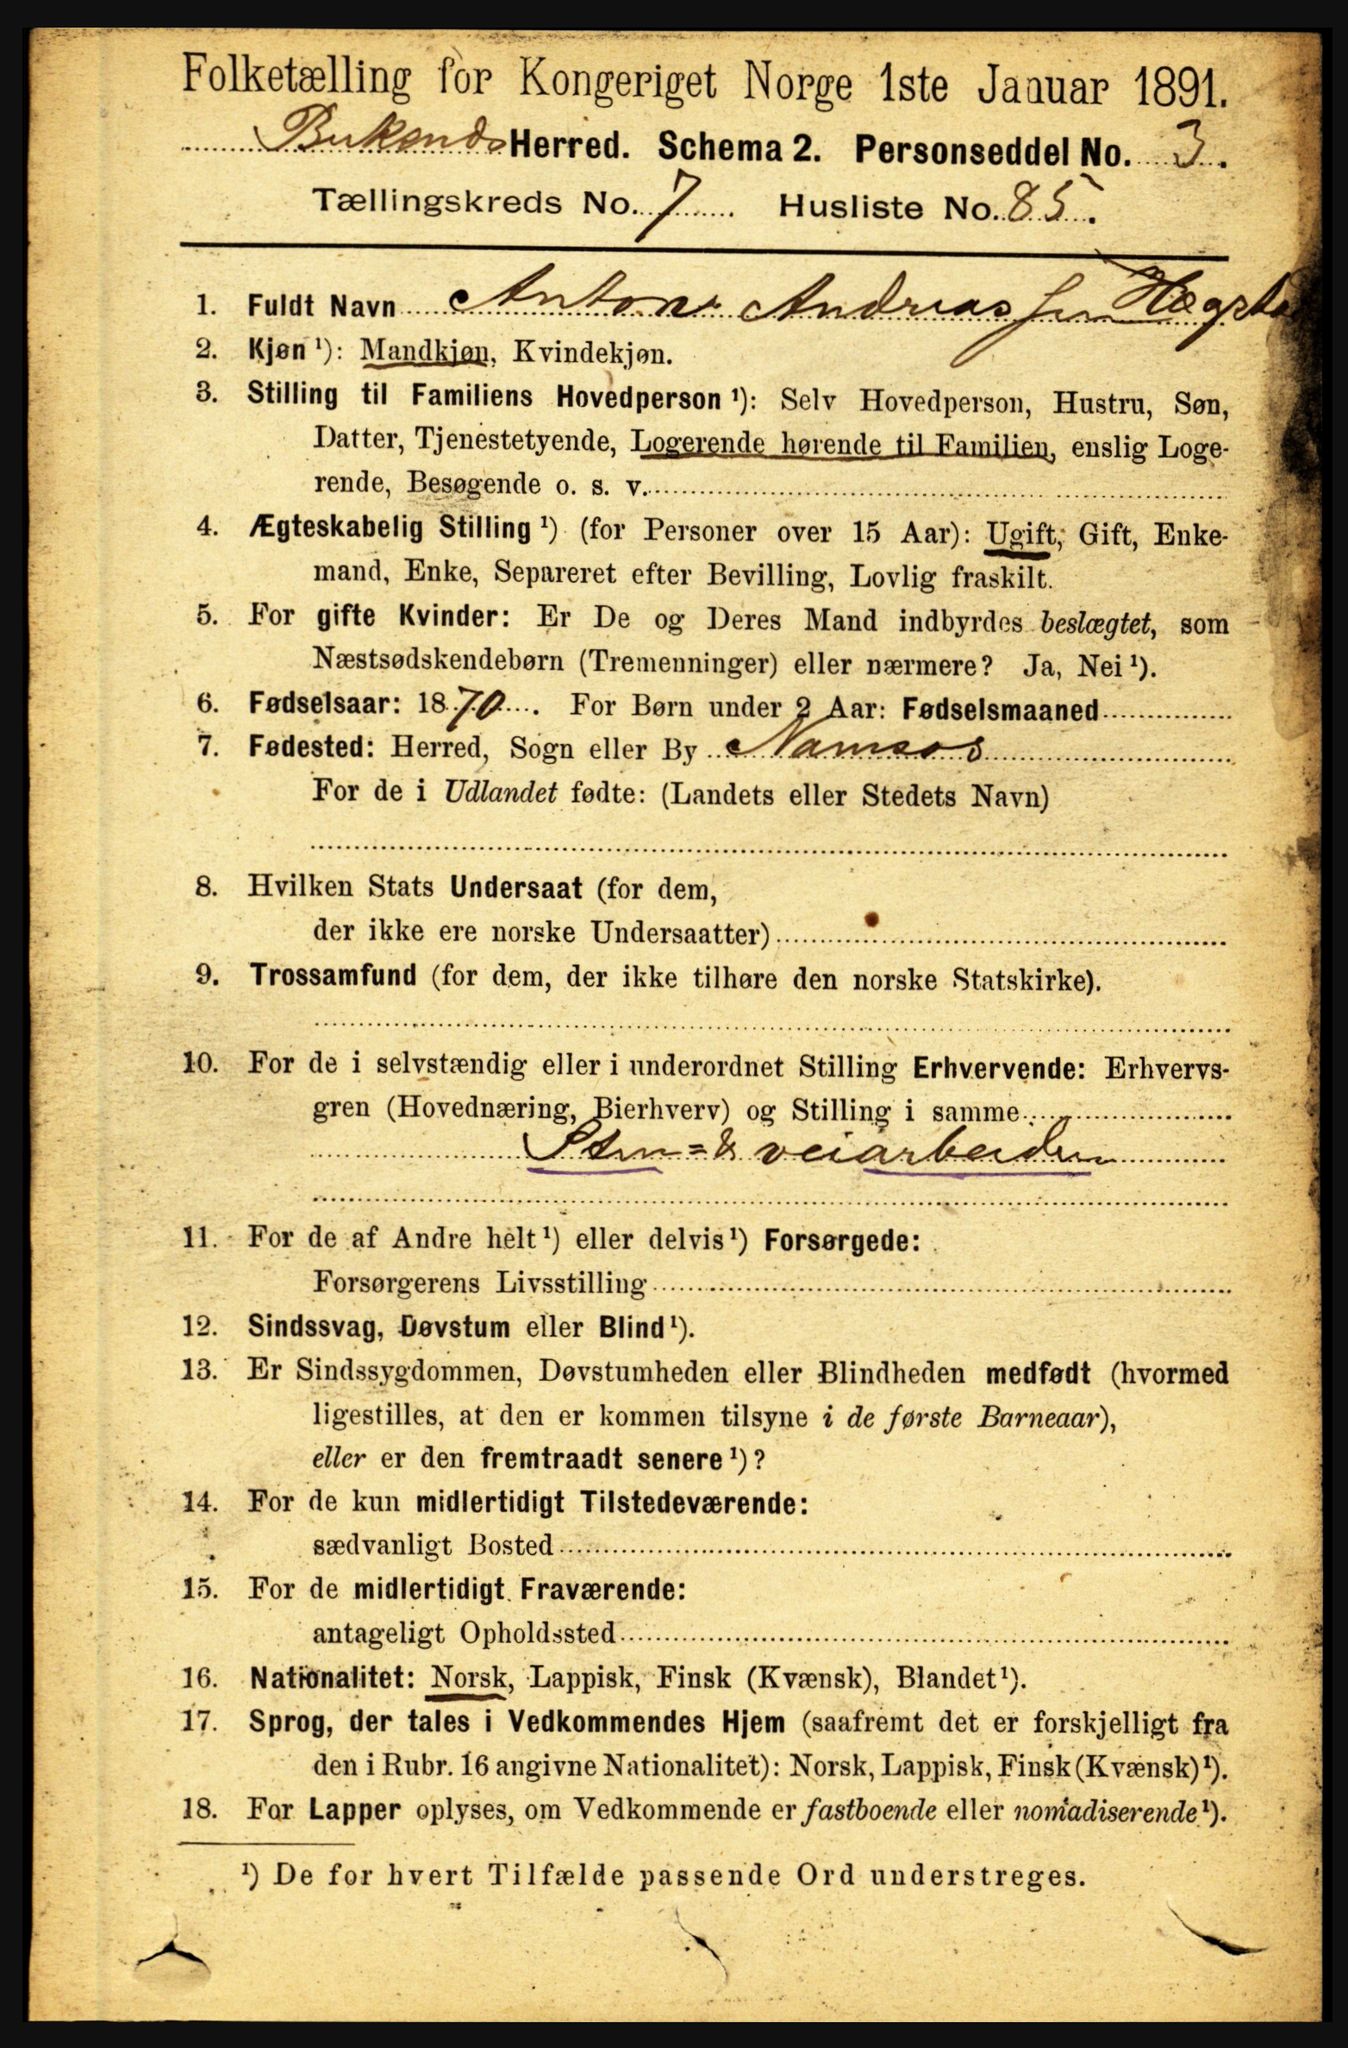 Folketælling for Kongeriget Norge 1ste Januar 1891.
Herred. Schema 2. Personseddel No. 3.
Tællingskreds No. 7 Husliste No. 85.
1. Fuldt Navn Anton Andreassen
2. Kjøn ¹): Mandkjøn, Kvindekjøn.
3. Stilling til Familiens Hovedperson ¹): Selv Hovedperson, Hustru, Søn,
Datter, Tjenestetyende, Logerende hørende til Familien, enslig Loge-
rende, Besøgende o. s. v.
4. Ægteskabelig Stilling ¹) (for Personer over 15 Aar): Ugift, Gift, Enke-
mand, Enke, Separeret efter Bevilling, Lovlig fraskilt.
5. For gifte Kvinder: Er De og Deres Mand indbyrdes beslægtet, som
Næstsødskendebørn (Tremenninger) eller nærmere? Ja, Nei ¹).
6. Fødselsaar: 1870. For Børn under 2 Aar: Fødselsmaaned
7. Fødested: Herred, Sogn eller By Namsos
For de i Udlandet fødte: (Landets eller Stedets Navn)
8. Hvilken Stats Undersaat (for dem,
der ikke ere norske Undersaatter)
9. Trossamfund (for dem, der ikke tilhøre den norske Statskirke).
10. For de i selvstændig eller i underordnet Stilling Erhvervende: Erhvervs-
gren (Hovednæring, Bierhverv) og Stilling i samme
Sten=& veiarbeider
11. For de af Andre helt ¹) eller delvis ¹) Forsørgede:
Forsørgerens Livsstilling
12. Sindssvag, Døvstum eller Blind ¹).
13. Er Sindssygdommen, Døvstumheden eller Blindheden medfødt (hvormed
ligestilles, at den er kommen tilsyne i de første Barneaar),
eller er den fremtraadt senere ¹)?
14. For de kun midlertidigt Tilstedeværende:
sædvanligt Bosted
15. For de midlertidigt Fraværende:
antageligt Opholdssted
16. Nationalitet: Norsk, Lappisk, Finsk (Kvænsk), Blandet ¹).
17. Sprog, der tales i Vedkommendes Hjem (saafremt det er forskjelligt fra
den i Rubr. 16 angivne Nationalitet): Norsk, Lappisk, Finsk (Kvænsk) ¹).
18. For Lapper oplyses, om Vedkommende er fastboende eller nomadiserende ¹).
¹) De for hvert Tilfælde passende Ord understreges.